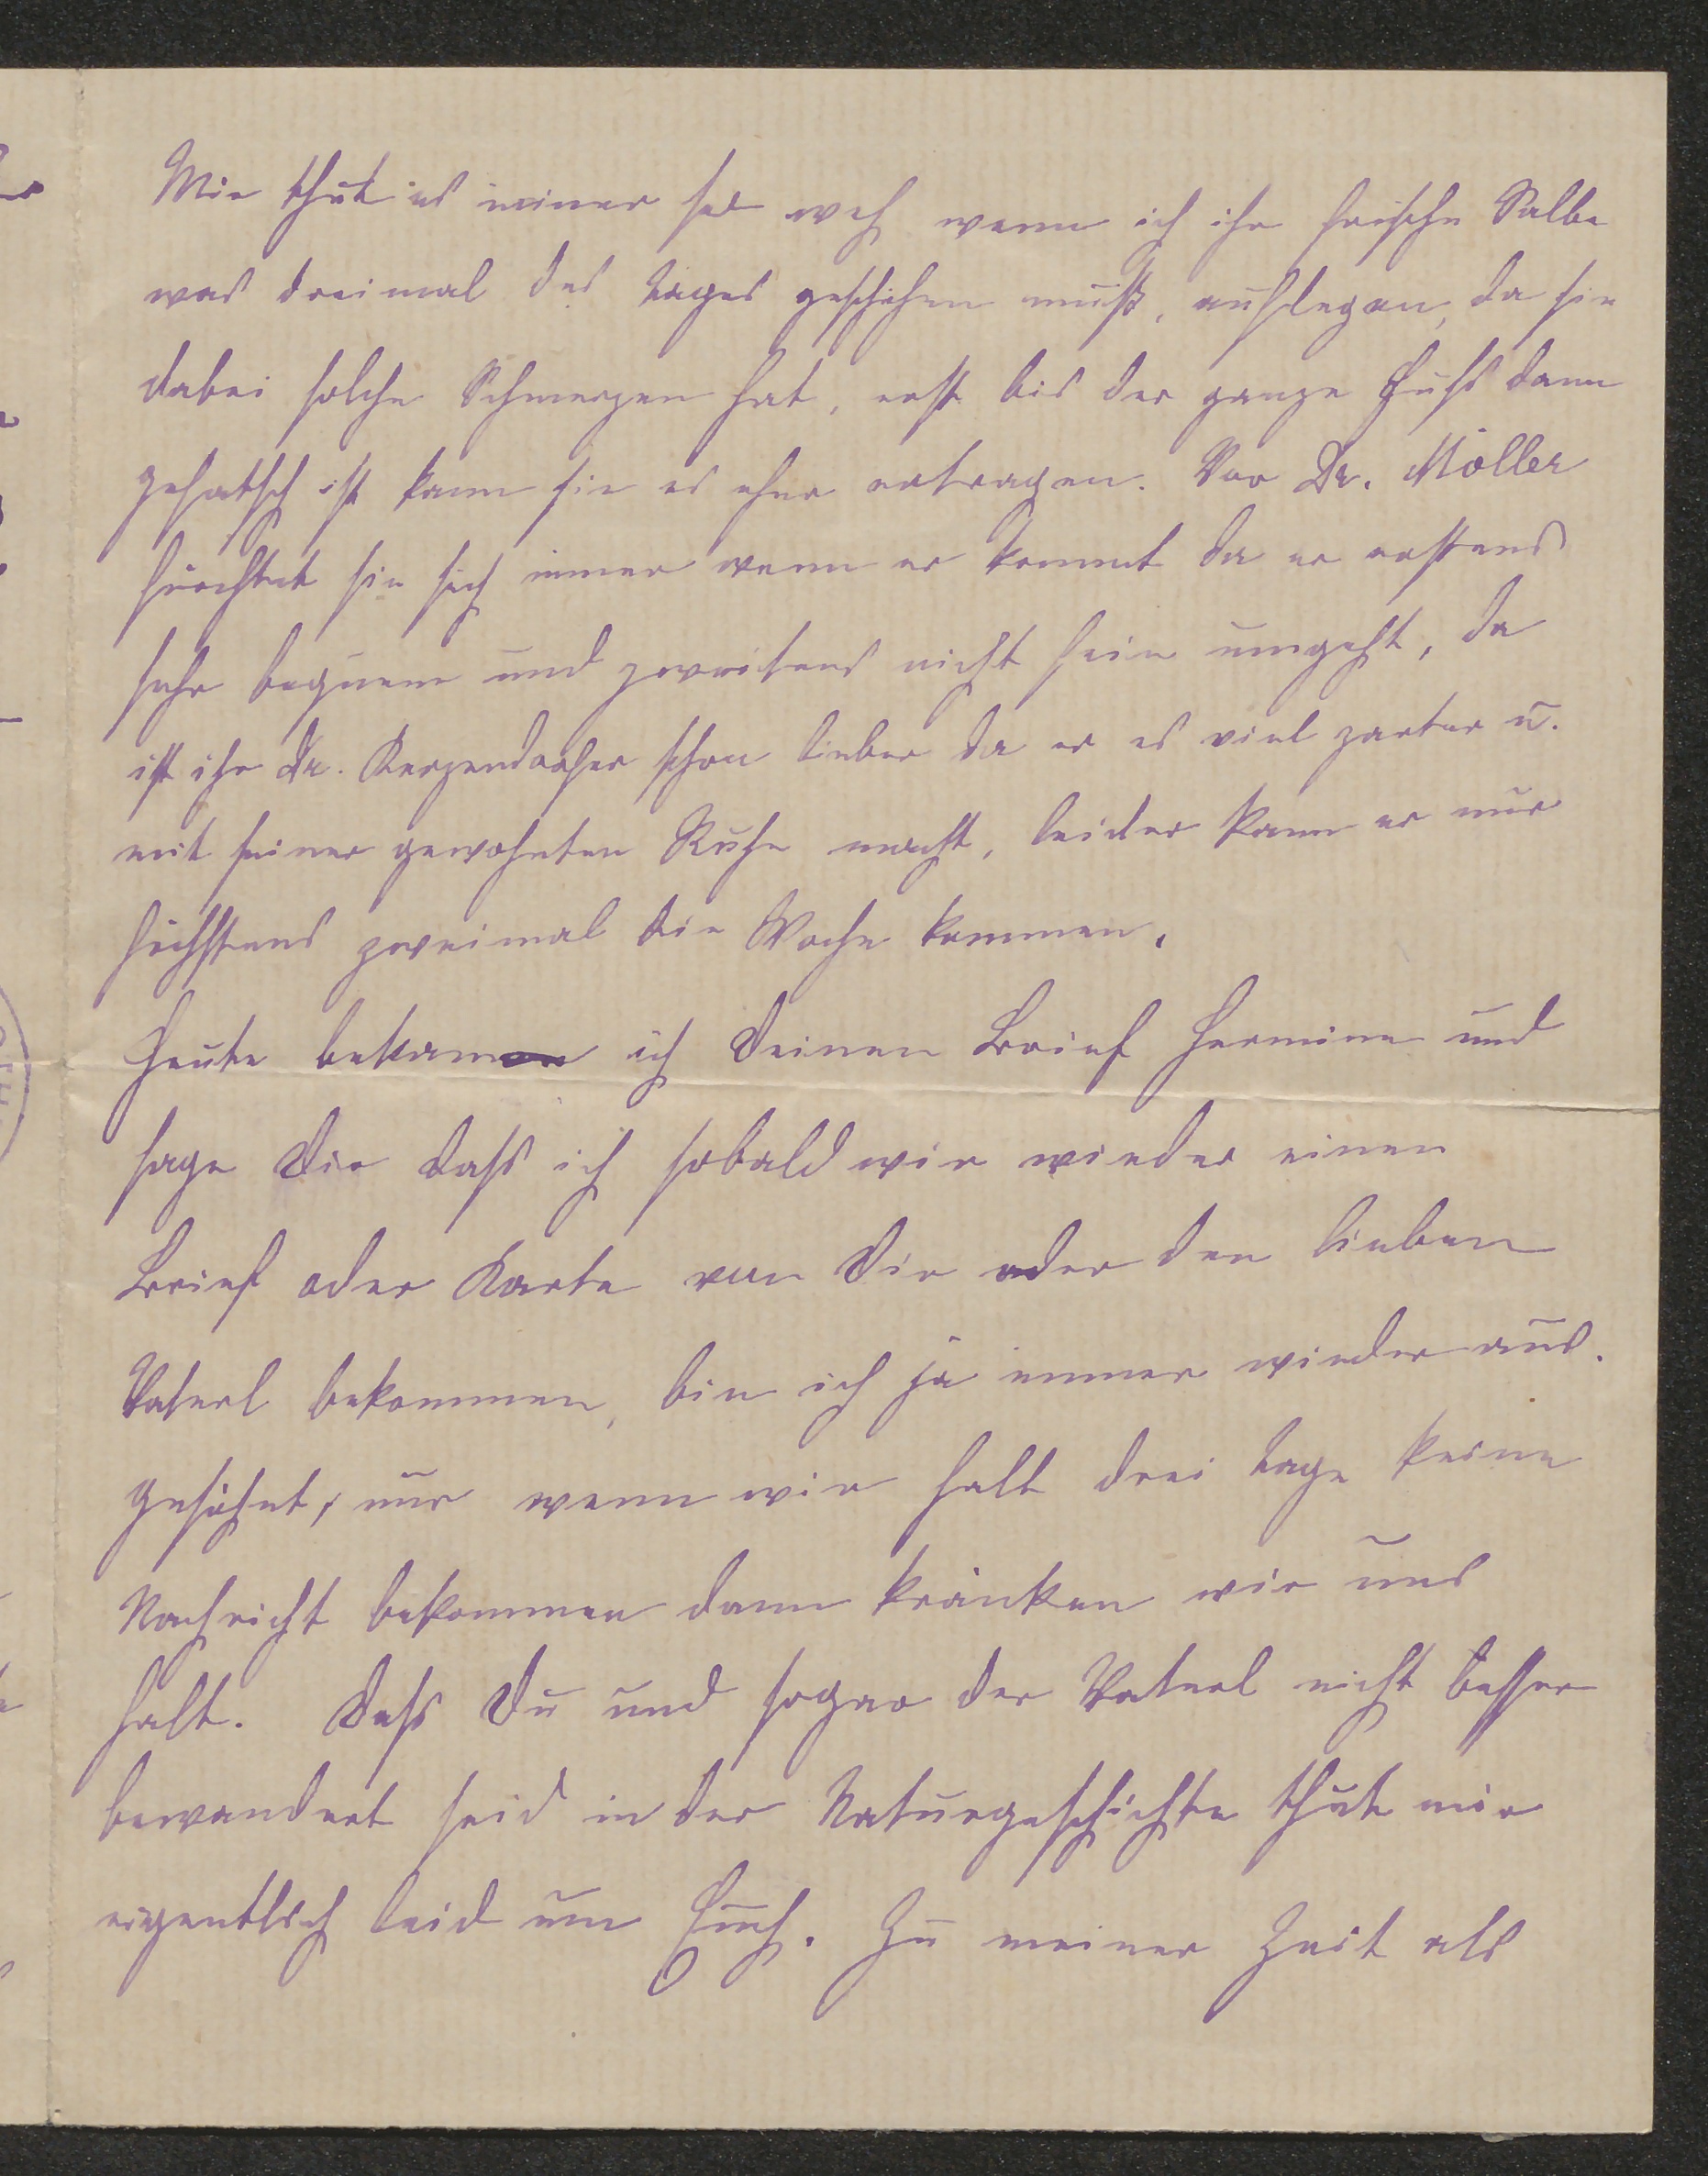 Mir thut es immer so weh wenn ich ihr frische Salbe
was dreimal des Tages geschehen muß, auflegen, da sie
dabei solche Schmerzen hat, erst bis der ganze Fuß dann
gefatscht ist kann sie es eher ertragen. Vor Dr. Möller
fürchtet sie sich immer wenn er kommt da er erstens
sehr bequem und zweitens nicht fein umgeht, da
ist ihr Dr. Kerzendorfer schon lieber da er es viel zarter u.
mit seiner gewohnten Ruhe macht, leider kann er nur
höchstens zweimal die Woche kommen.
Heute bekam ich Deinen Brief Hermine und
sage Dir daß ich sobald wir wieder einen
Brief oder Karte von Dir oder den lieben
Vaterl bekommen, bin ich ja immer wieder aus.
gesöhnt, nur wenn wir halt drei Tage keine
Nachricht bekommen dann kränken wir uns
halt. Daß Du und sogar der Vaterl nicht besser
bewandert seid in der Naturgeschichte thut mir
eigentlich leid um Euch. Zu meiner Zeit als